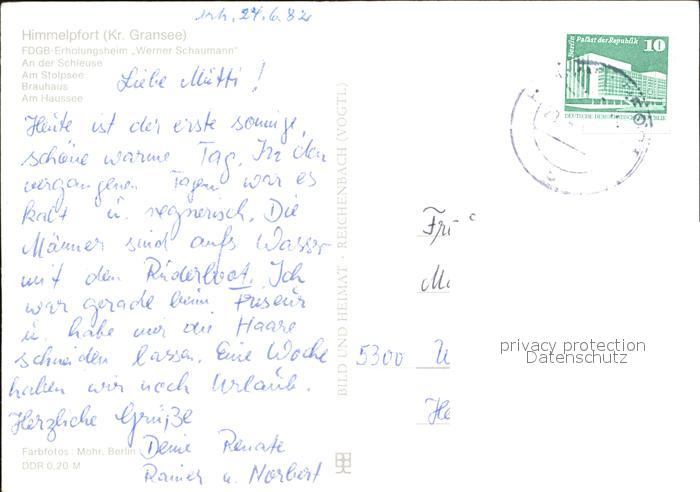 24.6.82
Himmelpfort (Kr. Gransee)
FDGB-Erholungsheim „Werner Schaumann"
An der Schleuse
Am Stolpsee
Brauhaus
Am Haussee
Liebe Mutti!
Heute ist der erste sonnige,
schöne warme Tag. In den
vergangenen Tagen war es
kalt u. regnerisch. Die
Männer sind aufs Wasser
mit dem Ruderboot. Ich
war gerade beim Friseur
u. habe mir die Haare
schneiden lassen. Eine Woche
haben wir noch Urlaub.
Herzliche Grüße
Deine Renate
Rainer u. Norbert
Farbfotos: Mohr, Berlin
DDR 0,20 M
BILD UND HEIMAT · REICHENBACH (VOGTL)
Berlin Palast der Republik 10
DEUTSCHE DEMOKRATISCHE REPUBLIK
5300
privacy protection
Datenschutz